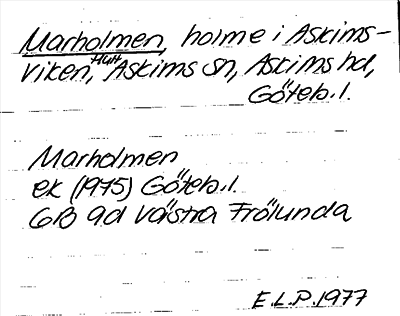 Marholmen, holme i Askims-
viken, Askims sn, Askims hd,
Göteb. l.
Marholmen
ek (1975) Göteb. l.
6B 9d Västra Frölunda
E.L.P. 1977